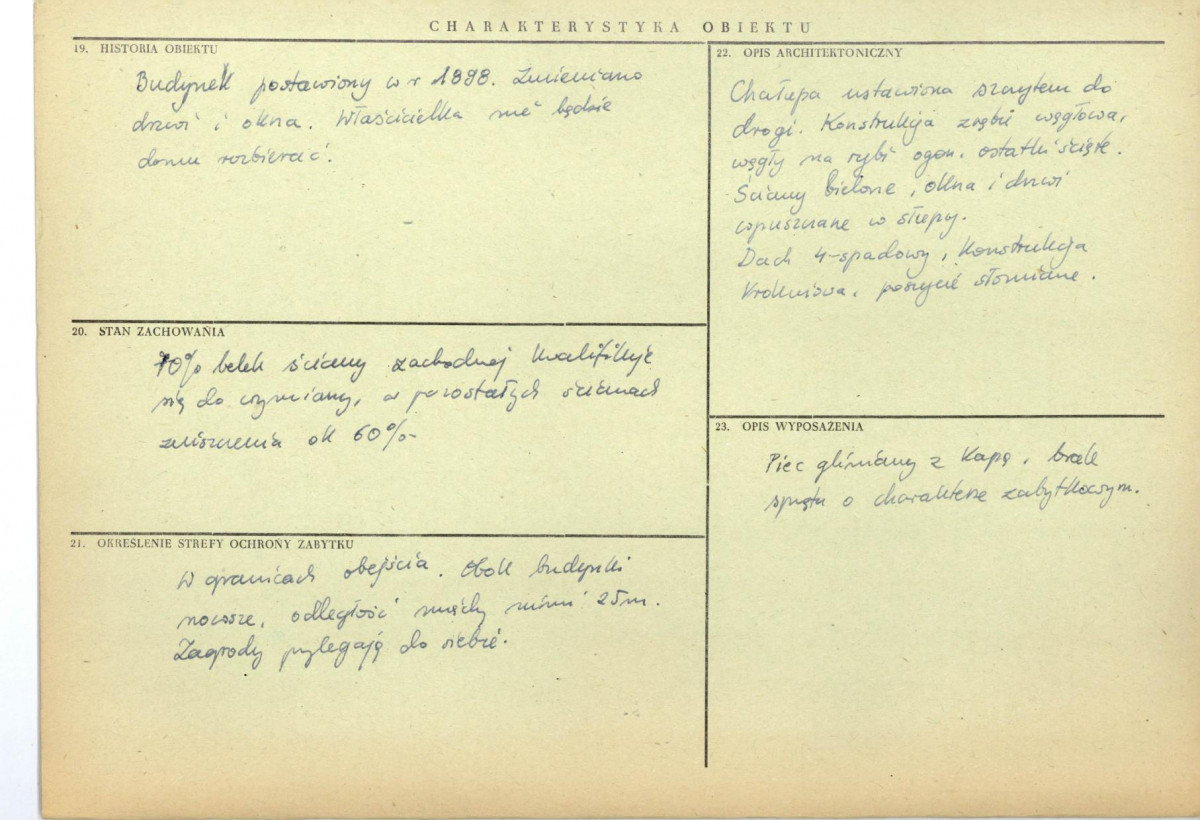 CHARAKTERYSTYKA OBIEKTU
19. HISTORIA OBIEKTU
Budynek postawiony w r 1898. Zmieniano
drzwi i okna. Właścicielka nie będzie
domu rozbierać.
20. STAN ZACHOWANIA
70% belek ściany zachodniej kwalifikuje
się do wymiany, w pozostałych ścianach
zniszczenia ok 60%
21. OKREŚLENIE STREFY OCHRONY ZABYTKU
W granicach obejścia. Obok budynki
nowsze, odległość między nimi 25m.
Zagrody przylegają do siebie.
22. OPIS ARCHITEKTONICZNY
Chałupa ustawiona szczytem do
drogi. Konstrukcja zrębu węgłowa,
węgły na rybi ogon, ostatki ścięte.
Ściany bielone, okna i drzwi
wpuszczane w słupy.
Dach 4-spadowy, konstrukcja
krokwiowa, poszycie słomiane.
23. OPIS WYPOSAŻENIA
Piec gliniany z kapą, brak
sprzętu o charakterze zabytkowym.